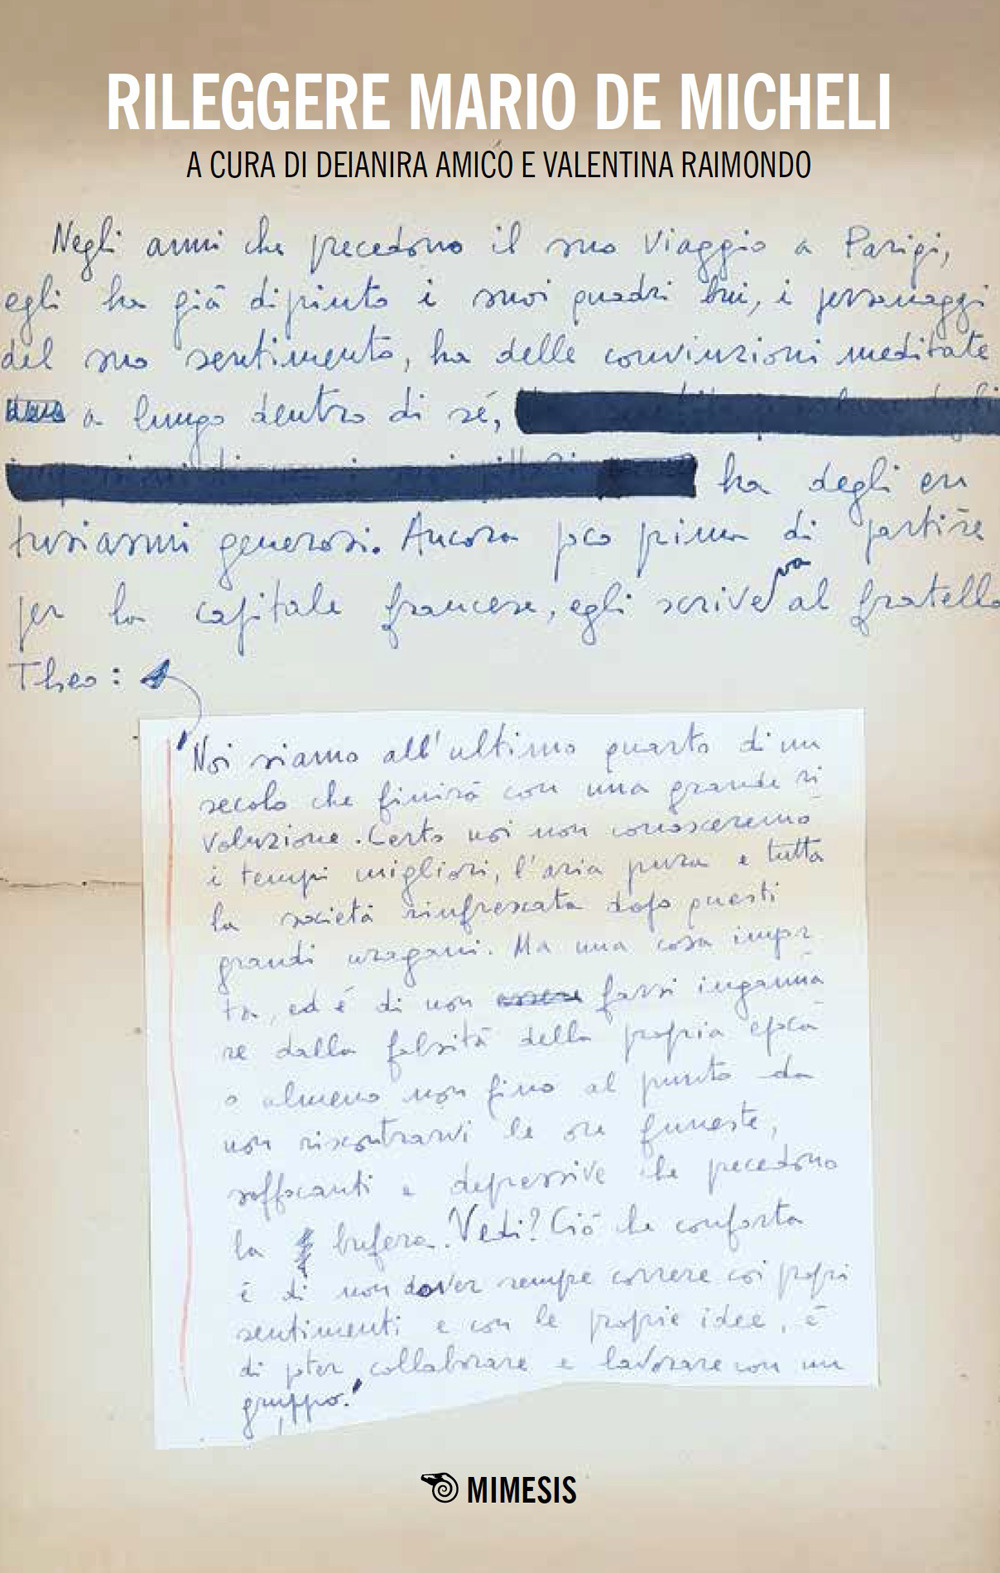 RILEGGERE MARIO DE MICHELI
A CURA DI DEIANIRA AMICO E VALENTINA RAIMONDO
Negli anni che precedono il suo viaggio a Parigi,
egli ha già dipinto i suoi quadri bui, i personaggi
del suo sentimento, ha delle convinzioni meditate
a lungo dentro di sé,
ha degli en
tusiasmi generosi. Ancora poco prima di partire
per la capitale francese, egli scriveva al fratello
Theo:
"Noi siamo all'ultimo quarto di un
secolo che finirà con una grande ri
voluzione. Certo noi non conosceremo
i tempi migliori, l'aria pura e tutta
la società rinfrescata dopo questi
grandi uragani. Ma una cosa impor
ta, ed è di non essere farsi inganna
re dalla falsità della propria epoca
o almeno non fino al punto da
non riscontrarvi le ore funeste,
soffocanti e depressive che precedono
la bufera. Vedi? Ciò che conforta
è di non dover sempre correre coi propri
sentimenti e con le proprie idee, è
di poter collaborare e lavorare con un
gruppo."
MIMESIS